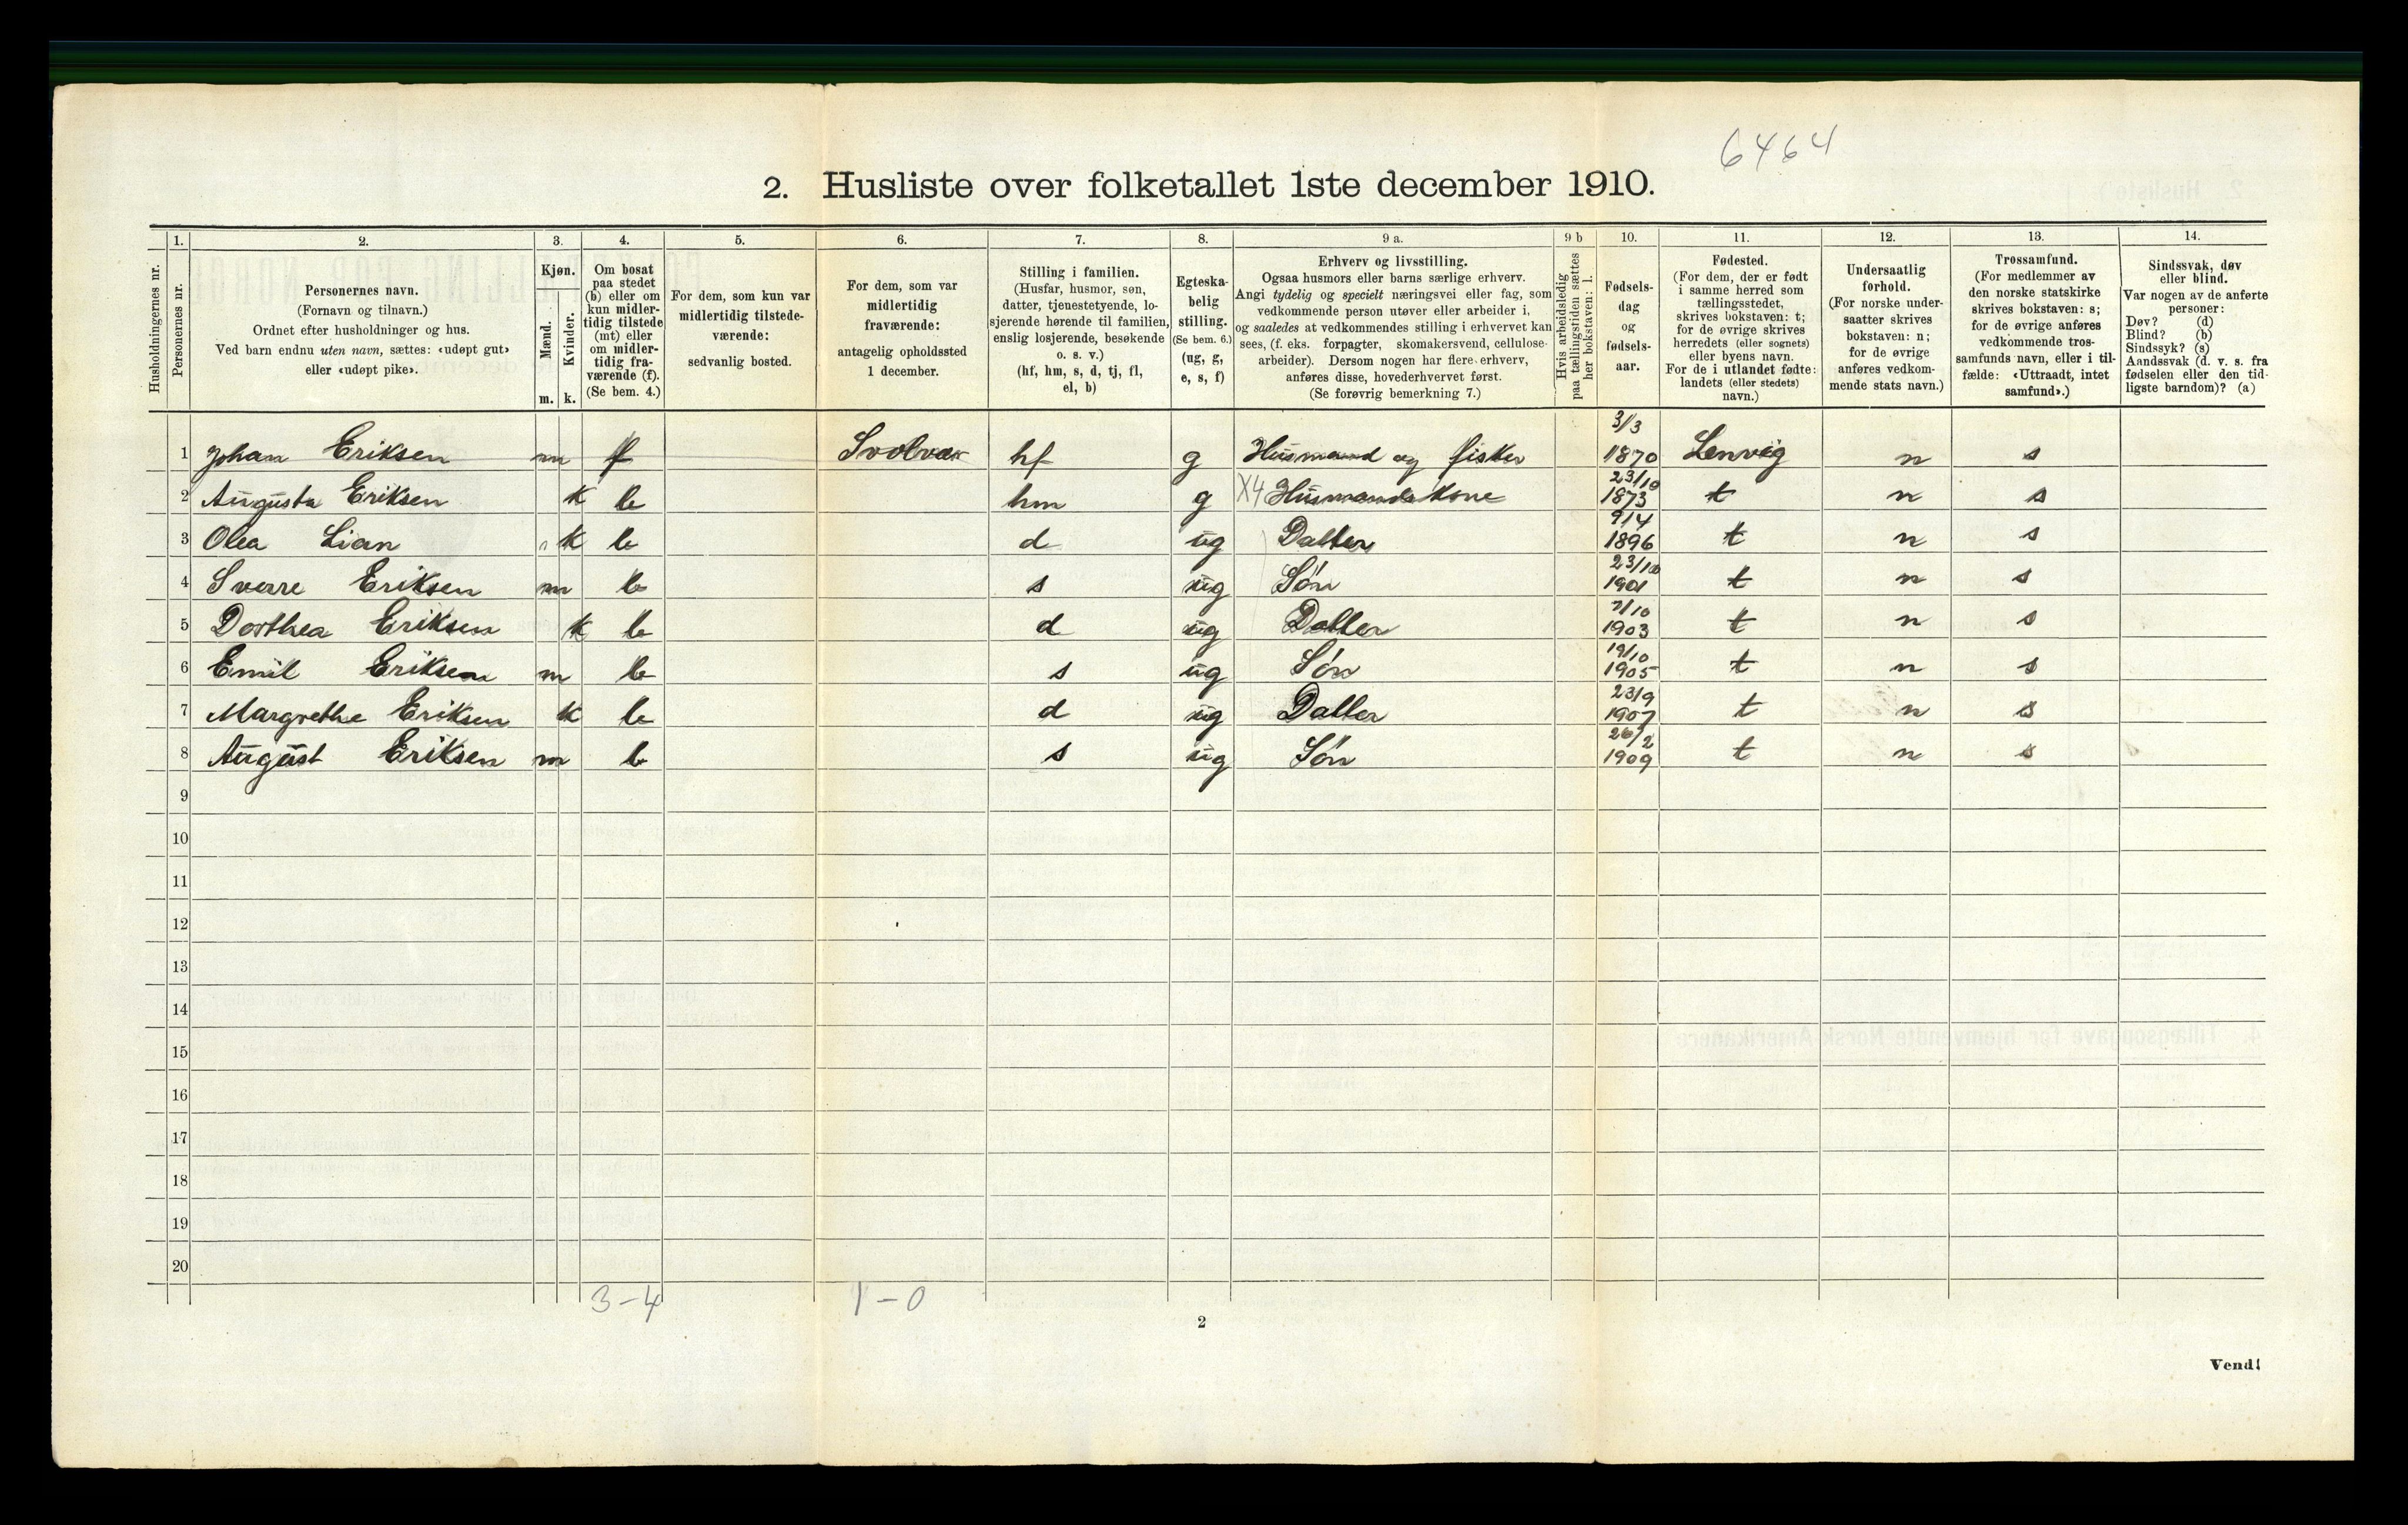 6464
2. Husliste over folketallet 1ste december 1910.
Husholdningernes nr.
1. Personernes nr.
2. Personernes navn.
(Fornavn og tilnavn.)
Ordnet efter husholdninger og hus.
Ved barn endnu uten navn, sættes: «udøpt gut»
eller «udøpt pike».
3. Kjøn.
Mænd. m.
Kvinder. k.
4. Om bosat
paa stedet
(b) eller om
kun midler-
tidig tilstede
(mt) eller
om midler-
tidig fra-
værende (f).
(Se bem. 4.)
5. For dem, som kun var
midlertidig tilstede-
værende:
sedvanlig bosted.
6. For dem, som var
midlertidig
fraværende:
antagelig opholdssted
1 december.
7. Stilling i familien.
(Husfar, husmor, søn,
datter, tjenestetyende, lo-
sjerende hørende til familien,
enslig losjerende, besøkende
o. s. v.)
(hf, hm, s, d, tj, fl,
el, b)
8. Egteska-
belig
stilling.
(Se bem. 6.)
(ug, g,
e, s, f)
9 a. Erhverv og livsstilling.
Ogsaa husmors eller barns særlige erhverv.
Angi tydelig og specielt næringsvei eller fag, som
vedkommende person utøver eller arbeider i,
og saaledes at vedkommendes stilling i erhvervet kan
sees, (f. eks. forpagter, skomakersvend, cellulose-
arbeider). Dersom nogen har flere erhverv,
anføres disse, hovederhvervet først.
(Se forøvrig bemerkning 7.)
9 b Hvis arbeidsledig
paa tællingstiden sættes
her bokstaven: l.
10. Fødsels-
dag
og
fødsels-
aar.
11. Fødested.
(For dem, der er født
i samme herred som
tællingsstedet,
skrives bokstaven: t;
for de øvrige skrives
herredets (eller sognets)
eller byens navn.
For de i utlandet fødte:
landets (eller stedets)
navn.)
12. Undersaatlig
forhold.
(For norske under-
saatter skrives
bokstaven: n;
for de øvrige
anføres vedkom-
mende stats navn.)
13. Trossamfund.
(For medlemmer av
den norske statskirke
skrives bokstaven: s;
for de øvrige anføres
vedkommende tros-
samfunds navn, eller i til-
fælde: «Uttraadt, intet
samfund».)
14. Sindssvak, døv
eller blind.
Var nogen av de anførte
personer:
Døv? (d)
Blind? (b)
Sindssyk? (s)
Aandssvak (d. v. s. fra
fødselen eller den tid-
ligste barndom)? (a)
1 Johan Eriksen m f Svolvær hf g Husmand og fisker 3/3 1870 Lenvig n s
2 Augusta Eriksen k b hm g X4 Husmandskone 23/10 1873 t n s
3 Olea Lian k b d ug Datter 9/4 1896 t n s
4 Sverre Eriksen m b s ug Søn 23/10 1901 t n s
5 Dorthea Eriksen k b d ug Datter 7/10 1903 t n s
6 Emil Eriksen m b s ug Søn 19/10 1905 t n s
7 Margrethe Eriksen k b d ug Datter 23/9 1907 t n s
8 August Eriksen m b s ug Søn 26/2 1909 t n s
9
10
11
12
13
14
15
16
17
18
19
20
3-4 1-0
2
Vend!